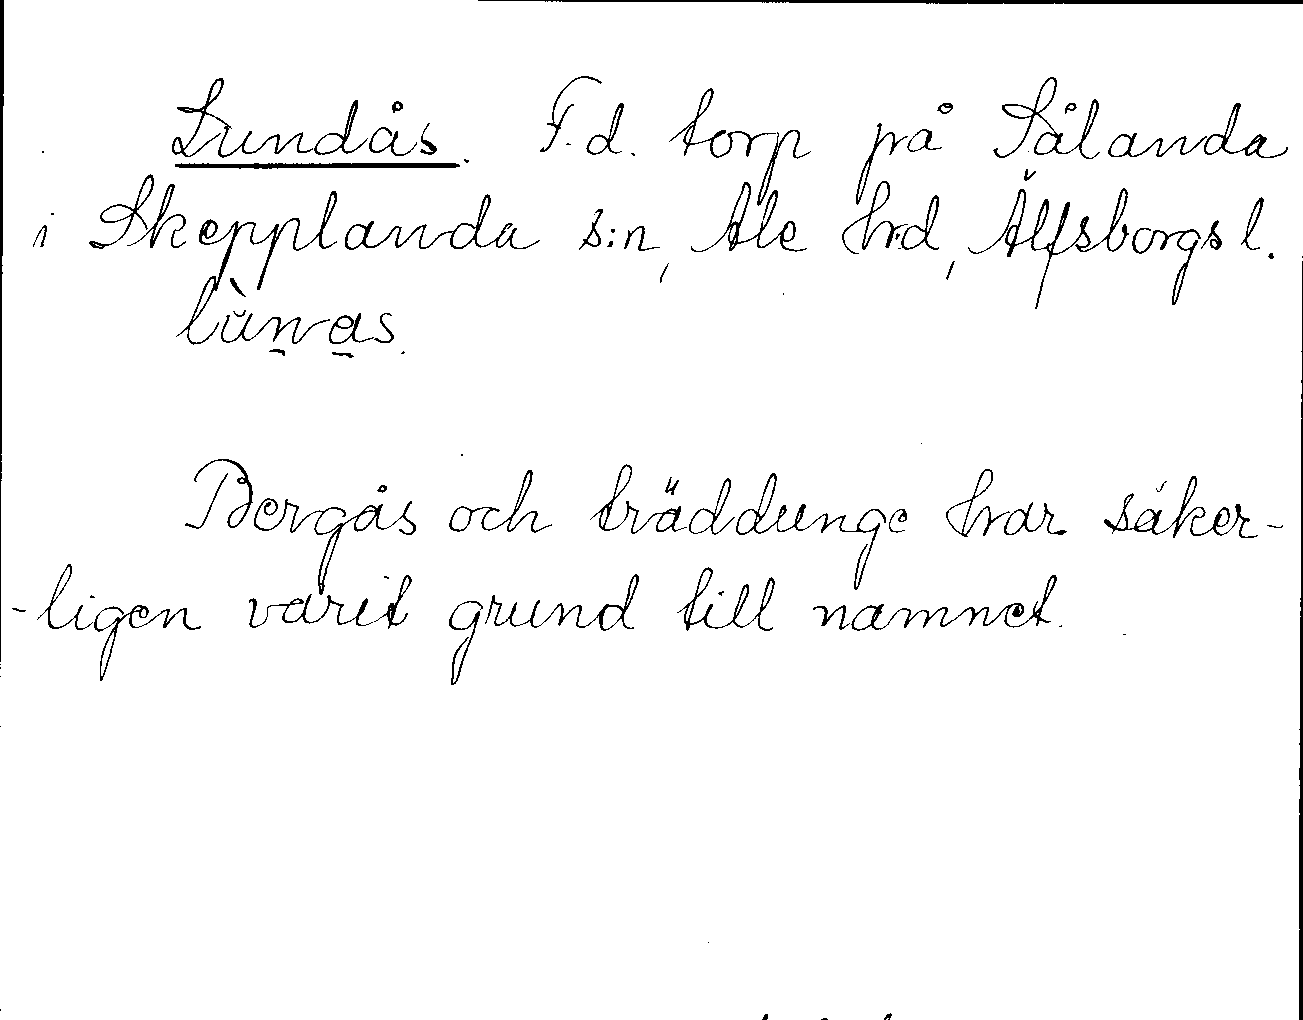 Lundås. F.d. torp på Sålanda
i Skepplanda s:n, Ale hrd, Älfsborgs l.
lùnas.
Bergås och träddunge har säker-
-ligen varit grund till namnet.